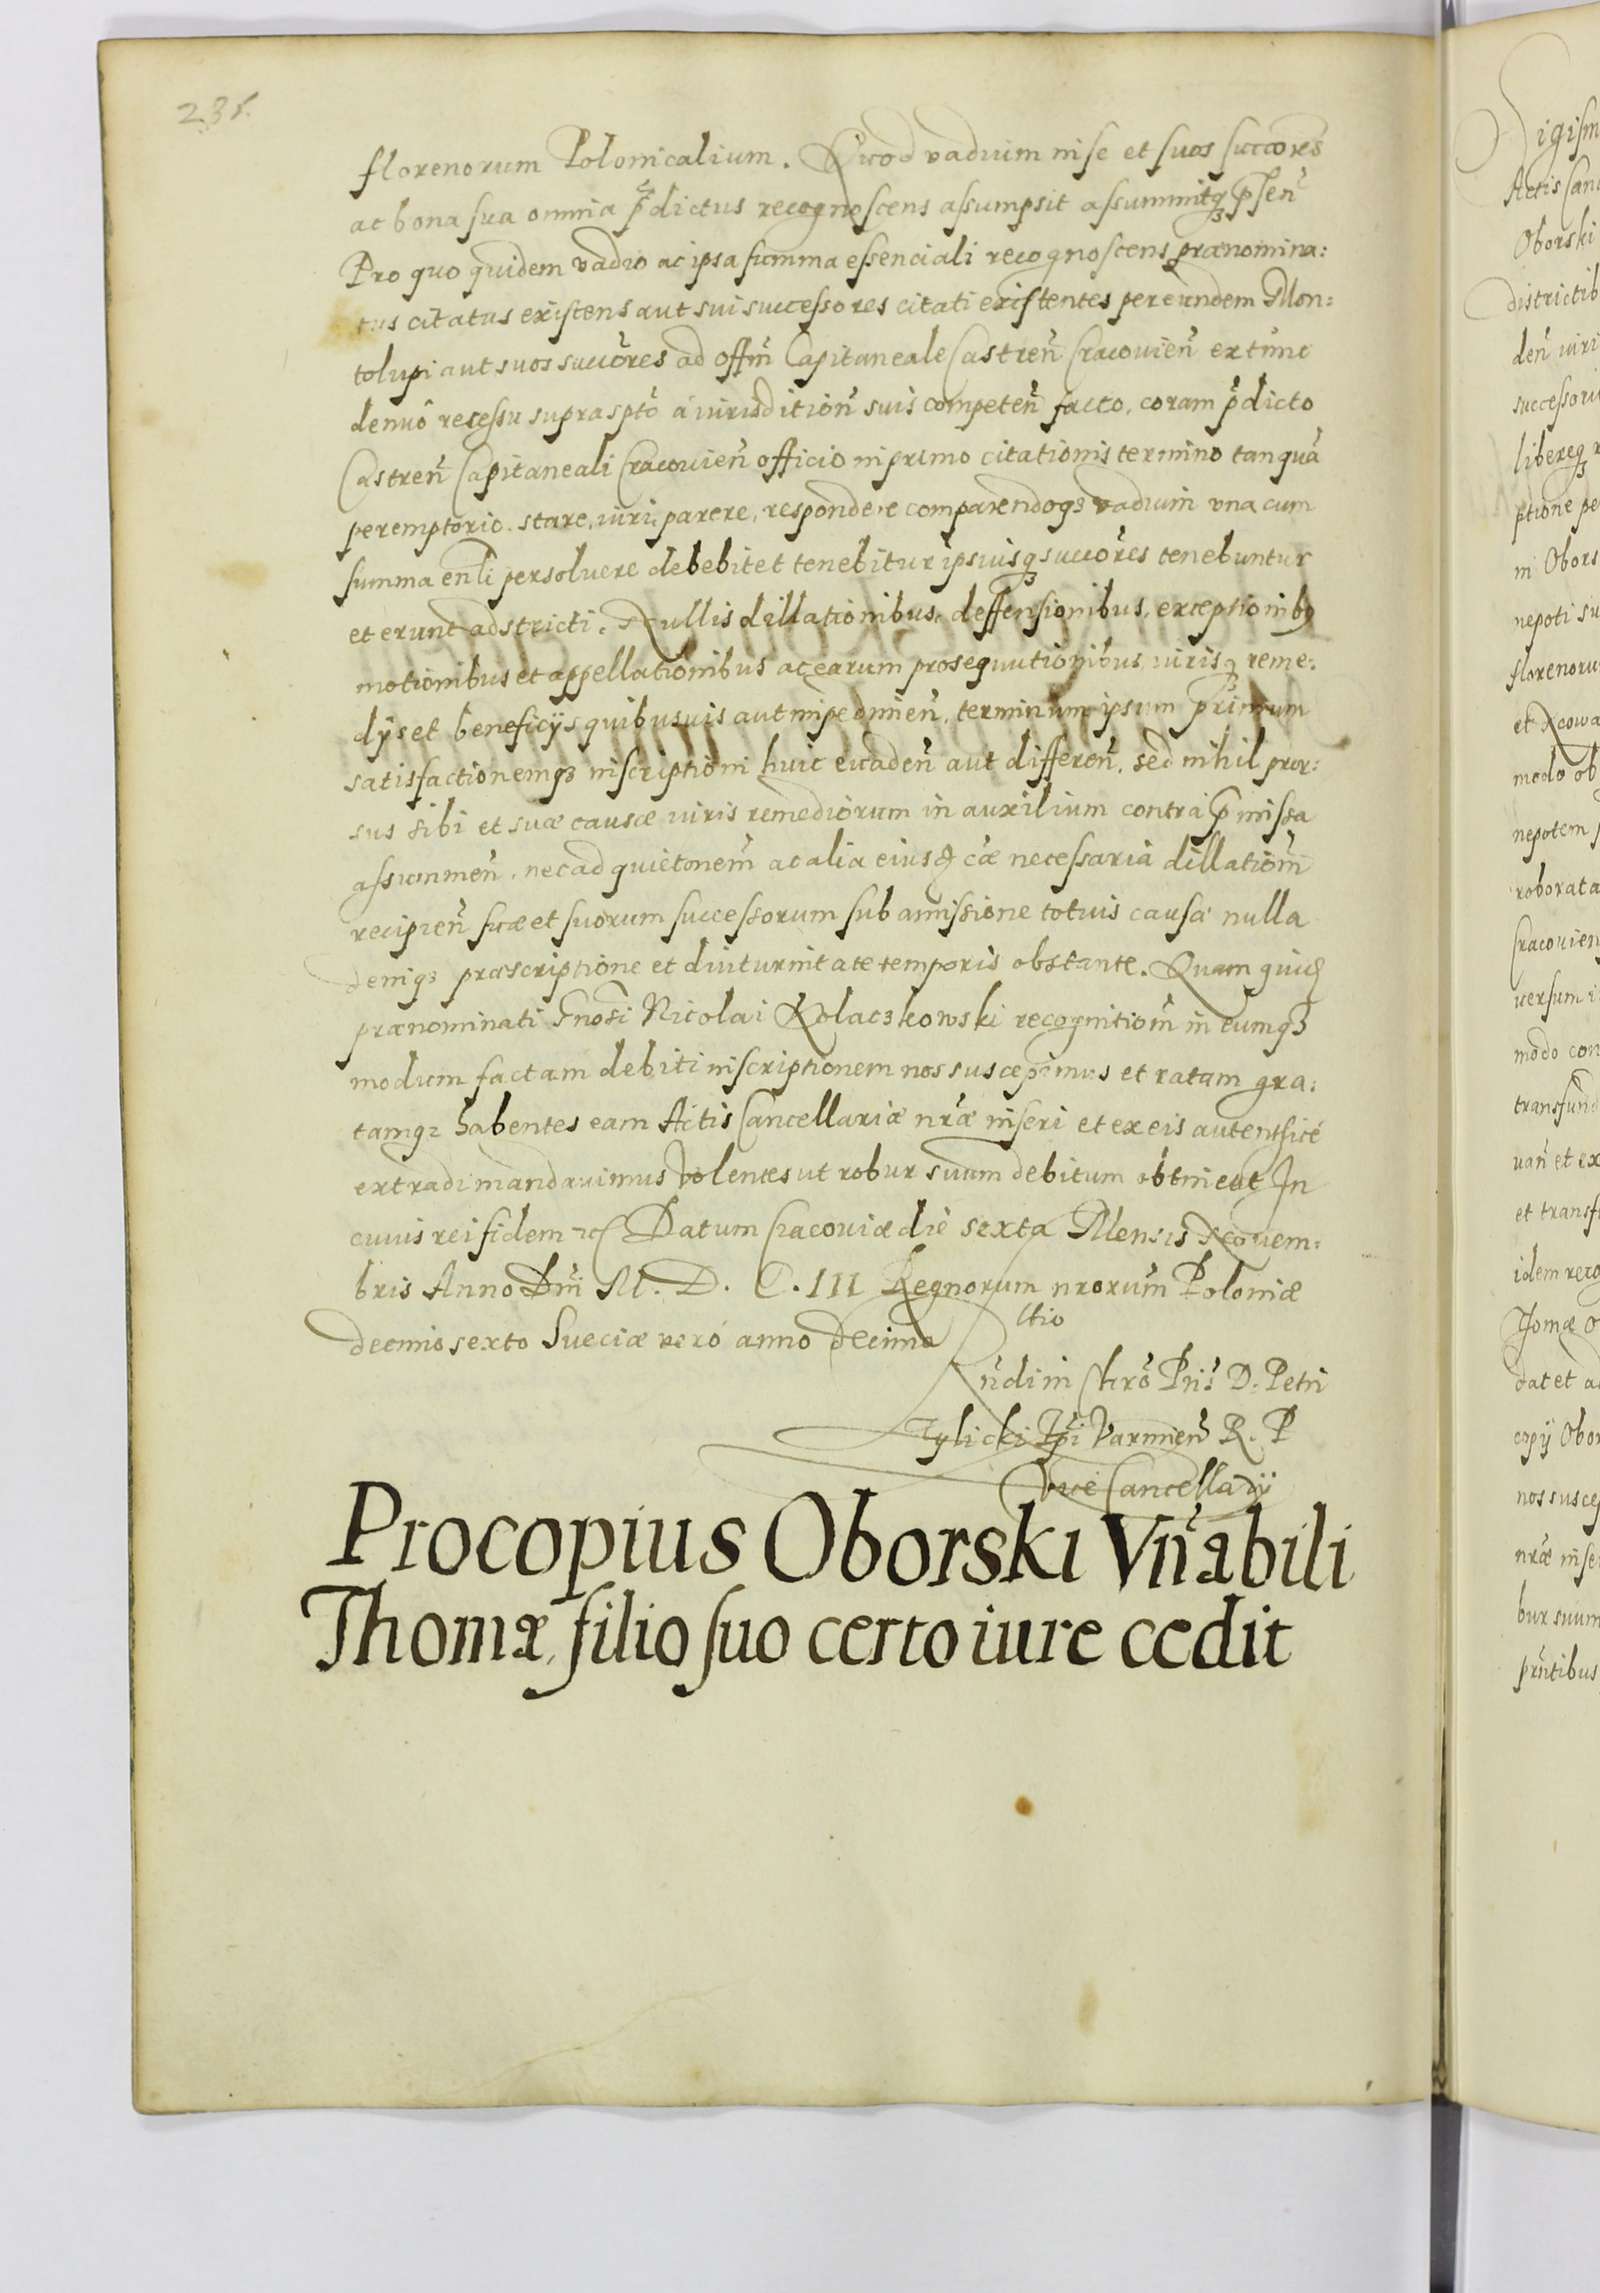 235.
florenorum Polonicalium. Quod vadium in se et suos succores
ac bona sua omnia p̃dictus recognoscens assumpsit assummitq3 p̃sen̄
Pro quo quidem vadio ac ipsa summa essenciali recognoscens prænomina:
tus citatus existens aut sui successores citati existentes per eundem Mon:
tolupi aut suos succõres ad offm̄ Capitaneale Castren̄ Cracovien̄ ex tunc
denuò recessu suprasptõ à iurisdition̄ suis competen̄ facto, coram p̃dicto
Castren̄ Capitaneali Cracovien̄ officio in primo citationis termino tanquã
peremptorio. stare, iuri parere, respondere comparendoq3 vadium una cum
summa en̄li persolvere debebit et tenebitur ipsiusq3 succõres tenebuntur
et erunt adstricti. Nullis dillationibus, deffensionibus, exceptionibq
motionibus et appellationibus ac earum prosequutionibus, iurisq3 reme:
dijs et beneficijs quibusvis aut impedimen̄, terminum ipsum primum
satisfactionemq3 inscriptioni huic evaden̄ aut differen̄, sed nihil pror:
sus sibi et suæ causæ iuris remediorum in auxilium contra p̃missa
assummen̄, nec ad quietonem̄ ac alia eiusd cæ necessaria dillatiom̄
recipien̄ suæ et suorum successorum sub amissione totius causæ nulla
deniq3 præscriptione et diuturnitate temporis obstante. Quam quid
prænominati Gnosi Nicolai Kolaczkowski recognitiom̄ in eumq3
modum factam debiti inscriptionem nos suscepimus et ratam gra:
tamq3 habentes eam Actis Cancellariæ nr̃æ inseri et ex eis autenticè
extradi mandavimus Volentes ut robur suum debitum obtineat In
cuius rei fidem etc Datum Cracoviæ die sexta Mensis Novem:
bris Anno Dn̄i M. D. C. III Regnorum nrorum̄ Poloniæ
decimo sexto Sueciæ verò anno decimo
Rñdi in Chrõ Pris D. Petri
Tylicki Ep̃i Varmien̄ R. P
Vice Cancellarij
Procopius Oborski Vn̄abili
Thomæ, filio suo certo iure cedit
Sigism
Actis Can
Oborski
districtib
den̄ iuri
successori
libereq3
ptione pe
in Obors
nepoti su
florenoru
et Nowa
modo ob
nepotem
roborata
Cracovien
versum
modo con
transfund
uan̄ et ex
et transf
idem reco
Tomæ O
dat et a
copij Obor
nos suscep
nr̃æ inse
bur suum
pñtibus